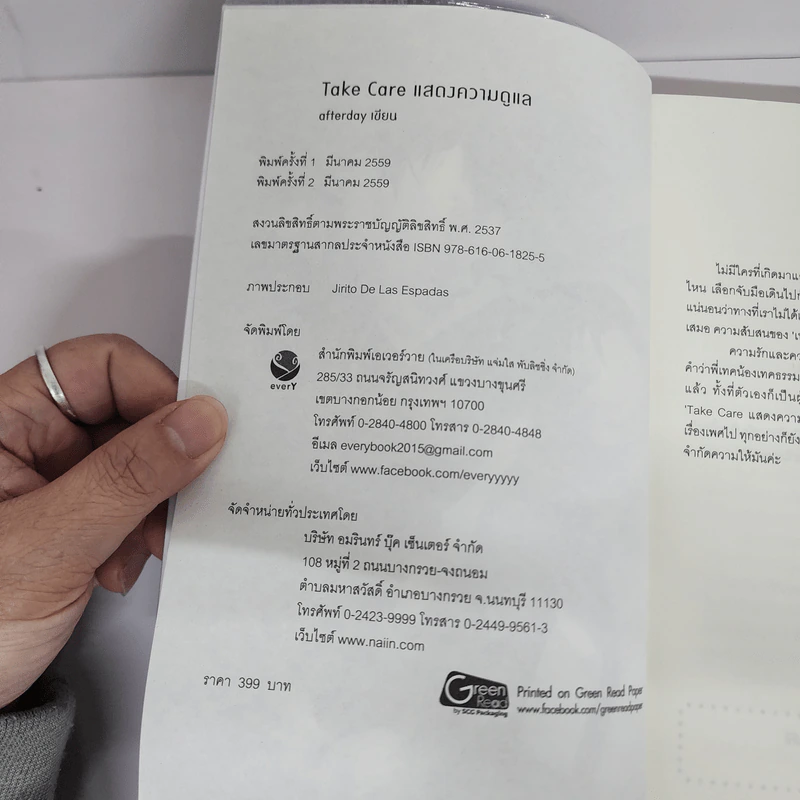 Take Care แสดงความดูแล
afterday เขียน
พิมพ์ครั้งที่ 1 มีนาคม 2559
พิมพ์ครั้งที่ 2 มีนาคม 2559
สงวนลิขสิทธิ์ตามพระราชบัญญัติลิขสิทธิ์ พ.ศ. 2537
เลขมาตรฐานสากลประจำหนังสือ ISBN 978-616-06-1825-5
ภาพประกอบ Jirito De Las Espadas
จัดพิมพ์โดย
everY
สำนักพิมพ์เอเวอร์วาย (ในเครือบริษัท แจ่มใส พับลิชชิ่ง จำกัด)
285/33 ถนนจรัญสนิทวงศ์ แขวงบางขุนศรี
เขตบางกอกน้อย กรุงเทพฯ 10700
โทรศัพท์ 0-2840-4800 โทรสาร 0-2840-4848
อีเมล everybook2015@gmail.com
เว็บไซต์ www.facebook.com/everyyyyy
จัดจำหน่ายทั่วประเทศโดย
บริษัท อมรินทร์ บุ๊ค เซ็นเตอร์ จำกัด
108 หมู่ที่ 2 ถนนบางกรวย-จงถนอม
ตำบลมหาสวัสดิ์ อำเภอบางกรวย จ.นนทบุรี 11130
โทรศัพท์ 0-2423-9999 โทรสาร 0-2449-9561-3
เว็บไซต์ www.naiin.com
ราคา 399 บาท
Green Read
by SCG Packaging
Printed on Green Read Paper
www.facebook.com/greenreadpaper
ไม่มีใครที่เกิดมาแ
ไหน เลือกจับมือเดินไปก
แน่นอนว่าทางที่เราไม่ได้เ
เสมอ ความสับสนของ 'เ
ความรักและคว
คำว่าพี่เทคน้องเทคธรรม
แล้ว ทั้งที่ตัวเองก็เป็นผู้
'Take Care แสดงความ
เรื่องเพศไป ทุกอย่างก็ยัง
จำกัดความให้มันค่ะ